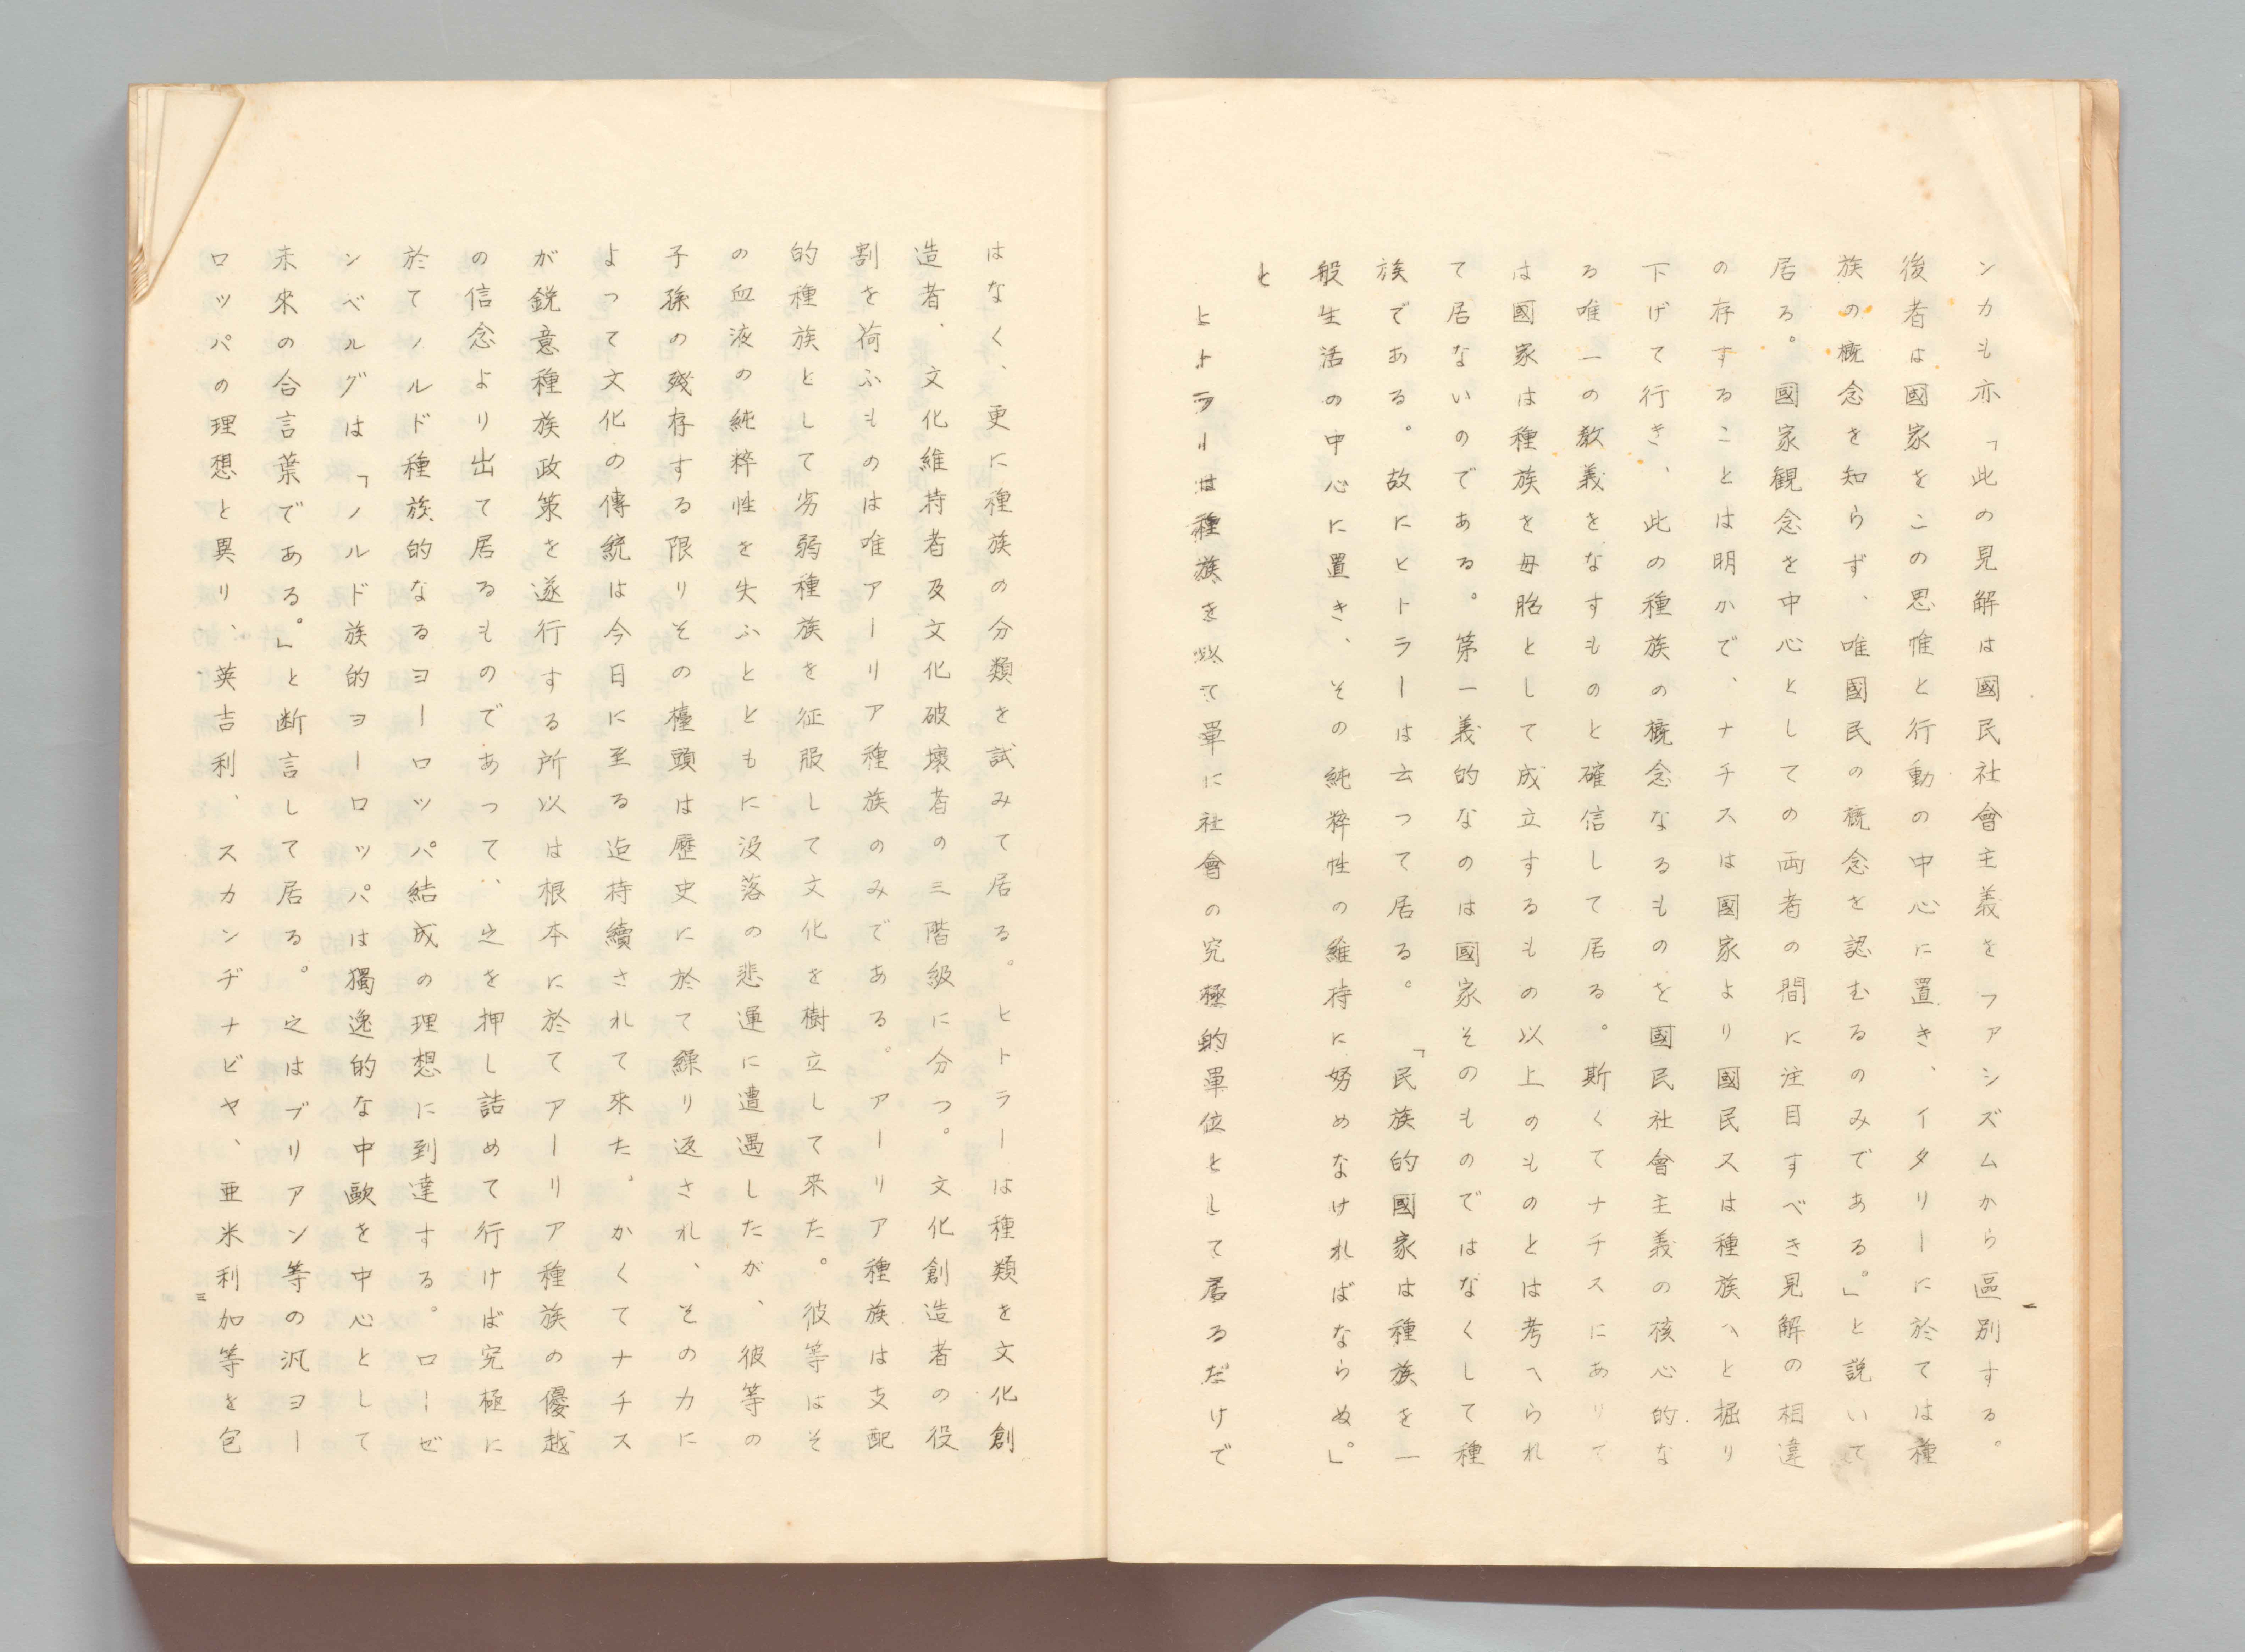 ンカも亦「此の見解は國民社會主義をファシズムから區別する。
後者は國家をこの思惟と行動の中心に置き、イタリーに於ては種
族の概念を知らず、唯國民の概念を認むるのみである。」と説いて
居る。國家観念を中心としての両者の間に注目すべき見解の相違
の存することは明かで、ナチスは國家より國民又は種族へと掘り
下げて行き、此の種族の概念なるものを國民社會主義の核心的な
る唯一の教義をなすものと確信して居る。斯くてナチスにありて
は國家は種族を母胎として成立するもの以上のものとは考へられ
て居ないのである。第一義的なのは國家そのものではなくして種
族である。故にヒトラーは云つて居る。「民族的國家は種族を一
般生活の中心に置き、その純粋性の維持に努めなければならぬ。」
と
ヒトラーは種族を以て單に社會の究極的單位として居るだけで
はなく、更に種族の分類を試みて居る。ヒトラーは種類を文化創
造者、文化維持者及文化破壞者の三階級に分つ。文化創造者の役
割を荷ふものは唯アーリア種族のみである。アーリア種族は支配
的種族として劣弱種族を征服して文化を樹立して来た。彼等はそ
の血液の純粹性を失ふとともに没落の悲運に遭遇したが、彼等の
子孫の残存する限りその擡頭は歴史に於て繰り返され、その力に
よつて文化の傳統は今日に至る迄持續されて來た。かくてナチス
が鋭意種族政策を遂行する所以は根本に於てアーリア種族の優越
の信念より出て居るものであつて、之を押し詰めて行けば究極に
於てノルド種族的なるヨーロツパ結成の理想に到達する。ローゼ
ンベルグは「ノルド族的ヨーロツパは獨逸的な中歐を中心として
未來の合言葉である。」と断言して居る。之はブリアン等の汎ヨー
ロツパの理想と異り、英吉利、スカンヂナビヤ、亜米利加等を包
三